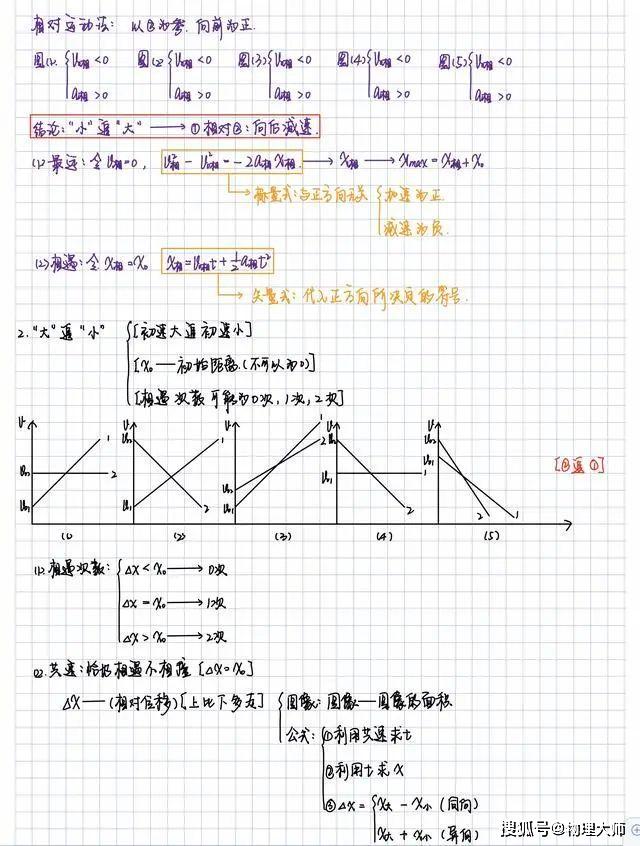 相对运动法: 以②为参. 向前为正.
图(1). { V₀相 < 0 图(2) { V₀相 < 0 图(3) { V₀相 < 0 图(4) { V₀相 < 0 图(5) { V₀相 < 0
a相 > 0 a相 > 0 a相 > 0 a相 > 0 a相 > 0
结论: "小"追"大" → ①相对②: 向后减速.
(1) 最远: 令 V相=0, V相² - V₀相² = -2a相X相 → X相 → Xmax = X相 + X₀
标量式: 与正方向无关 { 加速为正
减速为负.
(2) 相遇: 令 X相 = X₀ X相 = V₀相t + ½a相t²
矢量式: 代入正方向所决定的符号.
2. "大"追"小" { [初速大追初速小]
[X₀ — 初始距离. (不可以为0)]
[相遇次数可能为0次, 1次, 2次]
V V V V V
1 1 1 2
V₀₂ 2 V₀₂ V₀₁ 2 V₀₂ V₀₁ V₀₂ V₀₁ 1 2 V₀₂ V₀₁ 2 1
[②追①]
(1) (2) (3) (4) (5)
(1). 相遇次数: { ΔX < X₀ → 0次
ΔX = X₀ → 1次
ΔX > X₀ → 2次
(2). 共速: 恰好相遇不相撞 [ΔX = X₀]
ΔX — (相对位移) [上比下多走] { 图像: 图像 — 图像的面积
公式: { ①利用共速求t
②利用t求X
③ΔX = { X大 - X小 (同向)
X大 + X小 (异向)
搜狐号@物理大师